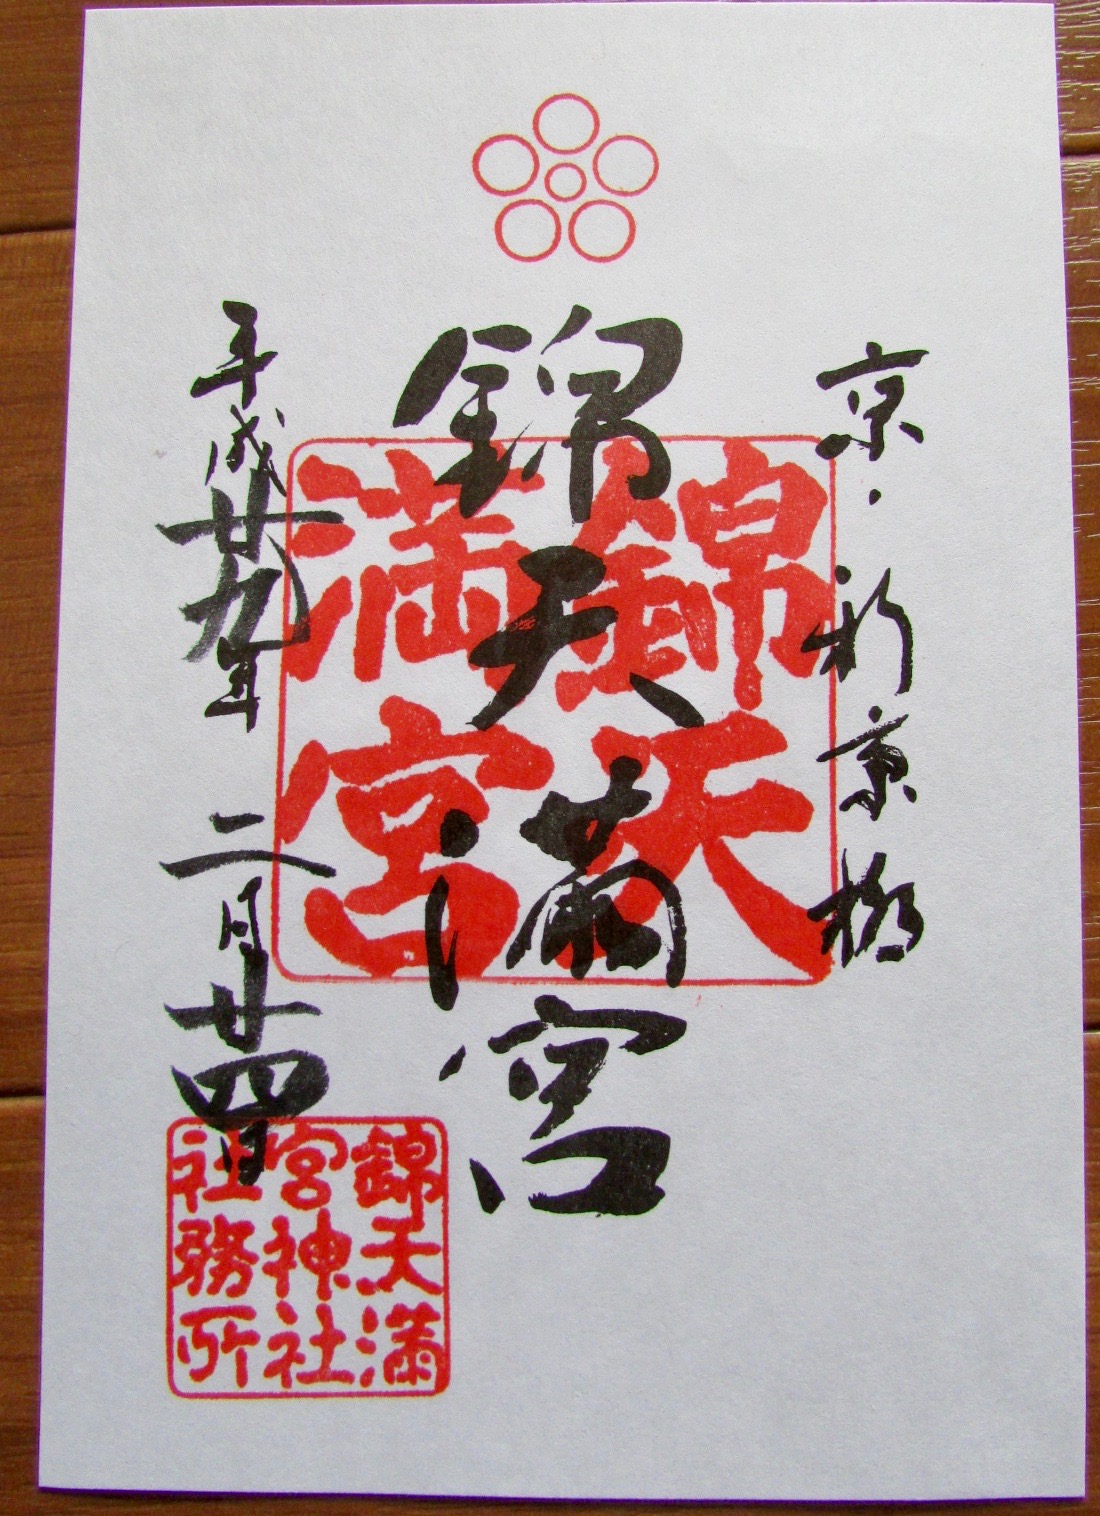 京・新京極
錦天満宮
平成廿九年二月廿四日
錦天
満宮
錦天満
宮神社
社務所